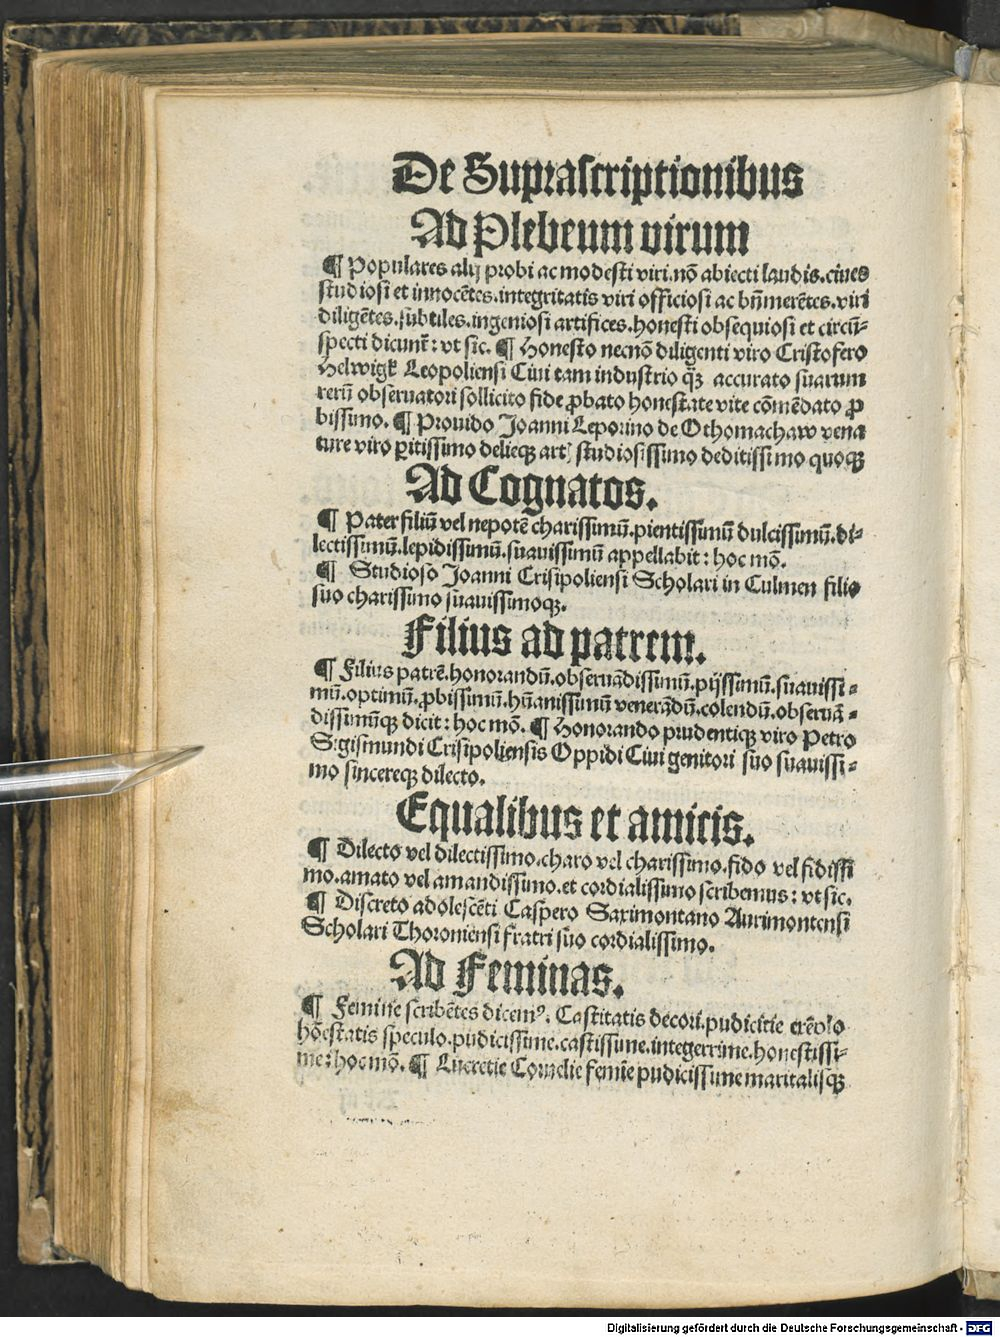 De Suprascriptionibus
Ad Plebeum virum
¶ Populares alij probi ac modesti viri.nō abiecti laudis.ciues
studiosi et innocētes.integritatis viri officiosi ac bn̄merētes.viri
diligētes.subtiles.ingeniosi artifices.honesti obsequiosi et circū-
specti dicunt̄: vt sic. ¶ Honesto necnō diligenti viro Cristofero
Helwigk Leopoliensi Ciui tam industrio q̄ꝫ accurato suarum
rerū obseruatori sollicito fide ꝓbato honestate vite cōmēdato ꝓ
bissimo. ¶ Prouido Joanni Leporino de Othomachaw vena
ture viro ꝑitissimo delieqꝫ art studiosissimo deditissimo quoqꝫ
Ad Cognatos.
¶ Pater filiū vel nepotē charissimū.pientissimū dulcissimū.di-
lectissimū.lepidissimū.suauissimū appellabit: hoc mō.
¶ Studioso Joanni Crisipoliensi Scholari in Culmen filio
suo charissimo suauissimoqꝫ.
Filius ad patrem.
¶ Filius patrē.honorandū.obseruādissimū.pijssimū.suauissi-
mū.optimū.ꝓbissimū.hūanissimū venerādū.colendū.obseruā-
dissimūqꝫ dicit: hoc mō. ¶ Honorando prudentiqꝫ viro Petro
Sigismundi Crisipoliensis Oppidi Ciui genitori suo suauissi-
mo sincereqꝫ dilecto.
Equalibus et amicis.
¶ Dilecto vel dilectissimo.charo vel charissimo.fido vel fidissi
mo.amato vel amandissimo.et cordialissimo scribemus: vt sic.
¶ Discreto adolescēti Caspero Saximontano Aurimontensi
Scholari Thoroniensi fratri suo cordialissimo.
Ad Feminas.
¶ Femine scribētes dicemꝰ. Castitatis decori.pudicitie exēplo
hōestatis speculo.pudicissime.castissime.integerrime.honestissi-
me: hoc mō. ¶ Lucretie Cornelie femīe pudicissime maritalisqꝫ
Digitalisierung gefördert durch die Deutsche Forschungsgemeinschaft - DFG